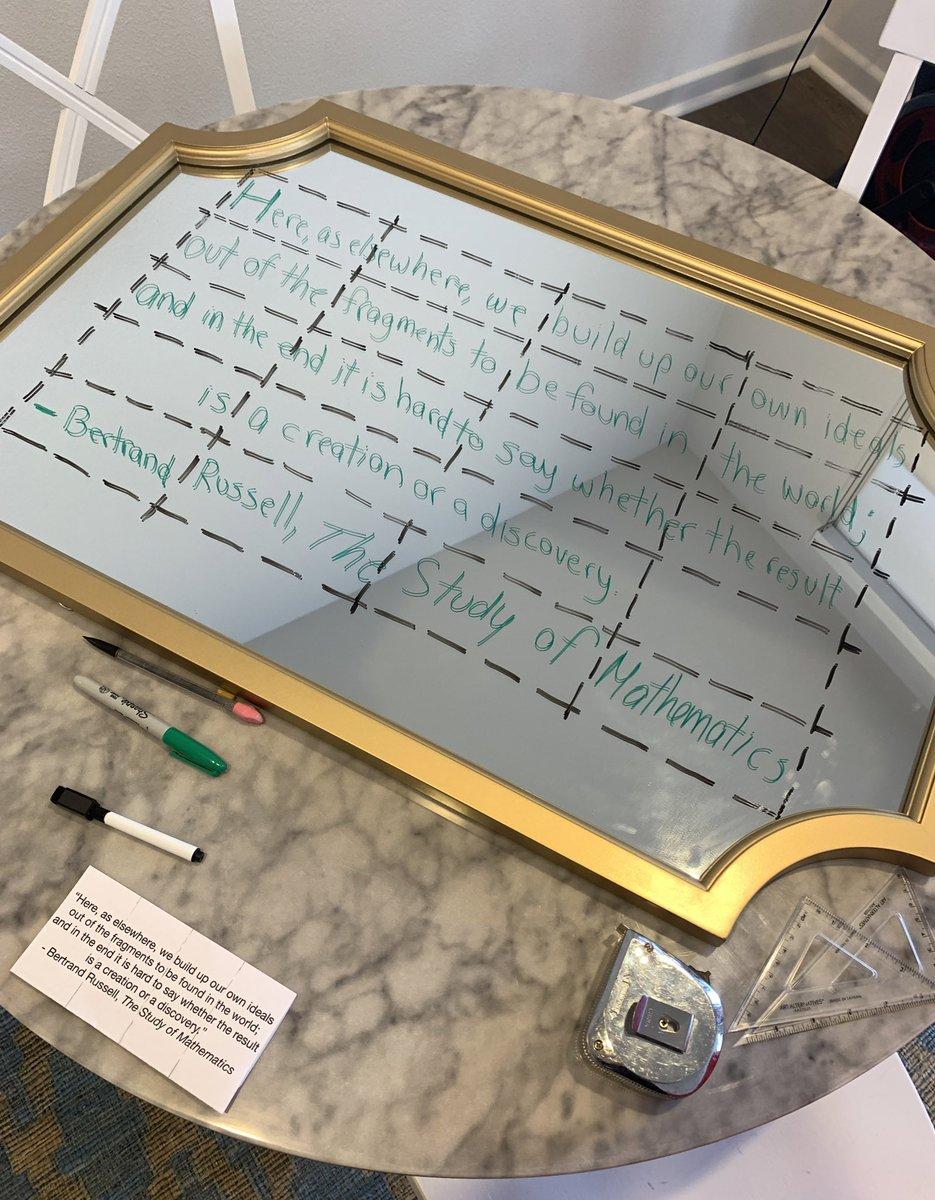 Here, as elsewhere, we build up our own ideals
out of the fragments to be found in the world;
and in the end it is hard to say whether the result
is a creation or a discovery.
- Bertrand Russell, The Study of Mathematics
Sharpie
"Here, as elsewhere, we build up our own ideals
out of the fragments to be found in the world;
and in the end it is hard to say whether the result
is a creation or a discovery."
- Bertrand Russell, The Study of Mathematics